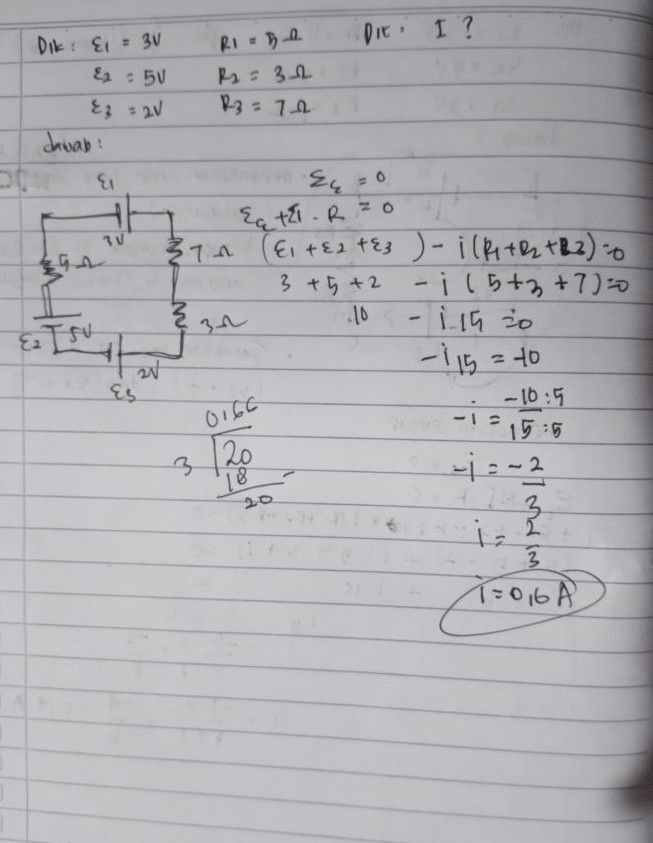 Dik: ε1 = 3V R1 = 5 Ω Dit: I ?
ε2 = 5V R2 = 3 Ω
ε3 = 2V R3 = 7 Ω
Jawab:
ε1
3V
7 Ω
5 Ω
3 Ω
ε2 5V
2V
ε3
Σε = 0
Σε + Σi · R = 0
(ε1 + ε2 + ε3) - i(R1+R2+R3)=0
3 + 5 + 2 - i (5+3+7)=0
10 - i 15 = 0
-i 15 = -10
-i = -10:5
15:5
-i = -2
3
i = 2
3
i = 0,6 A
0,66
3 20
18 -
20